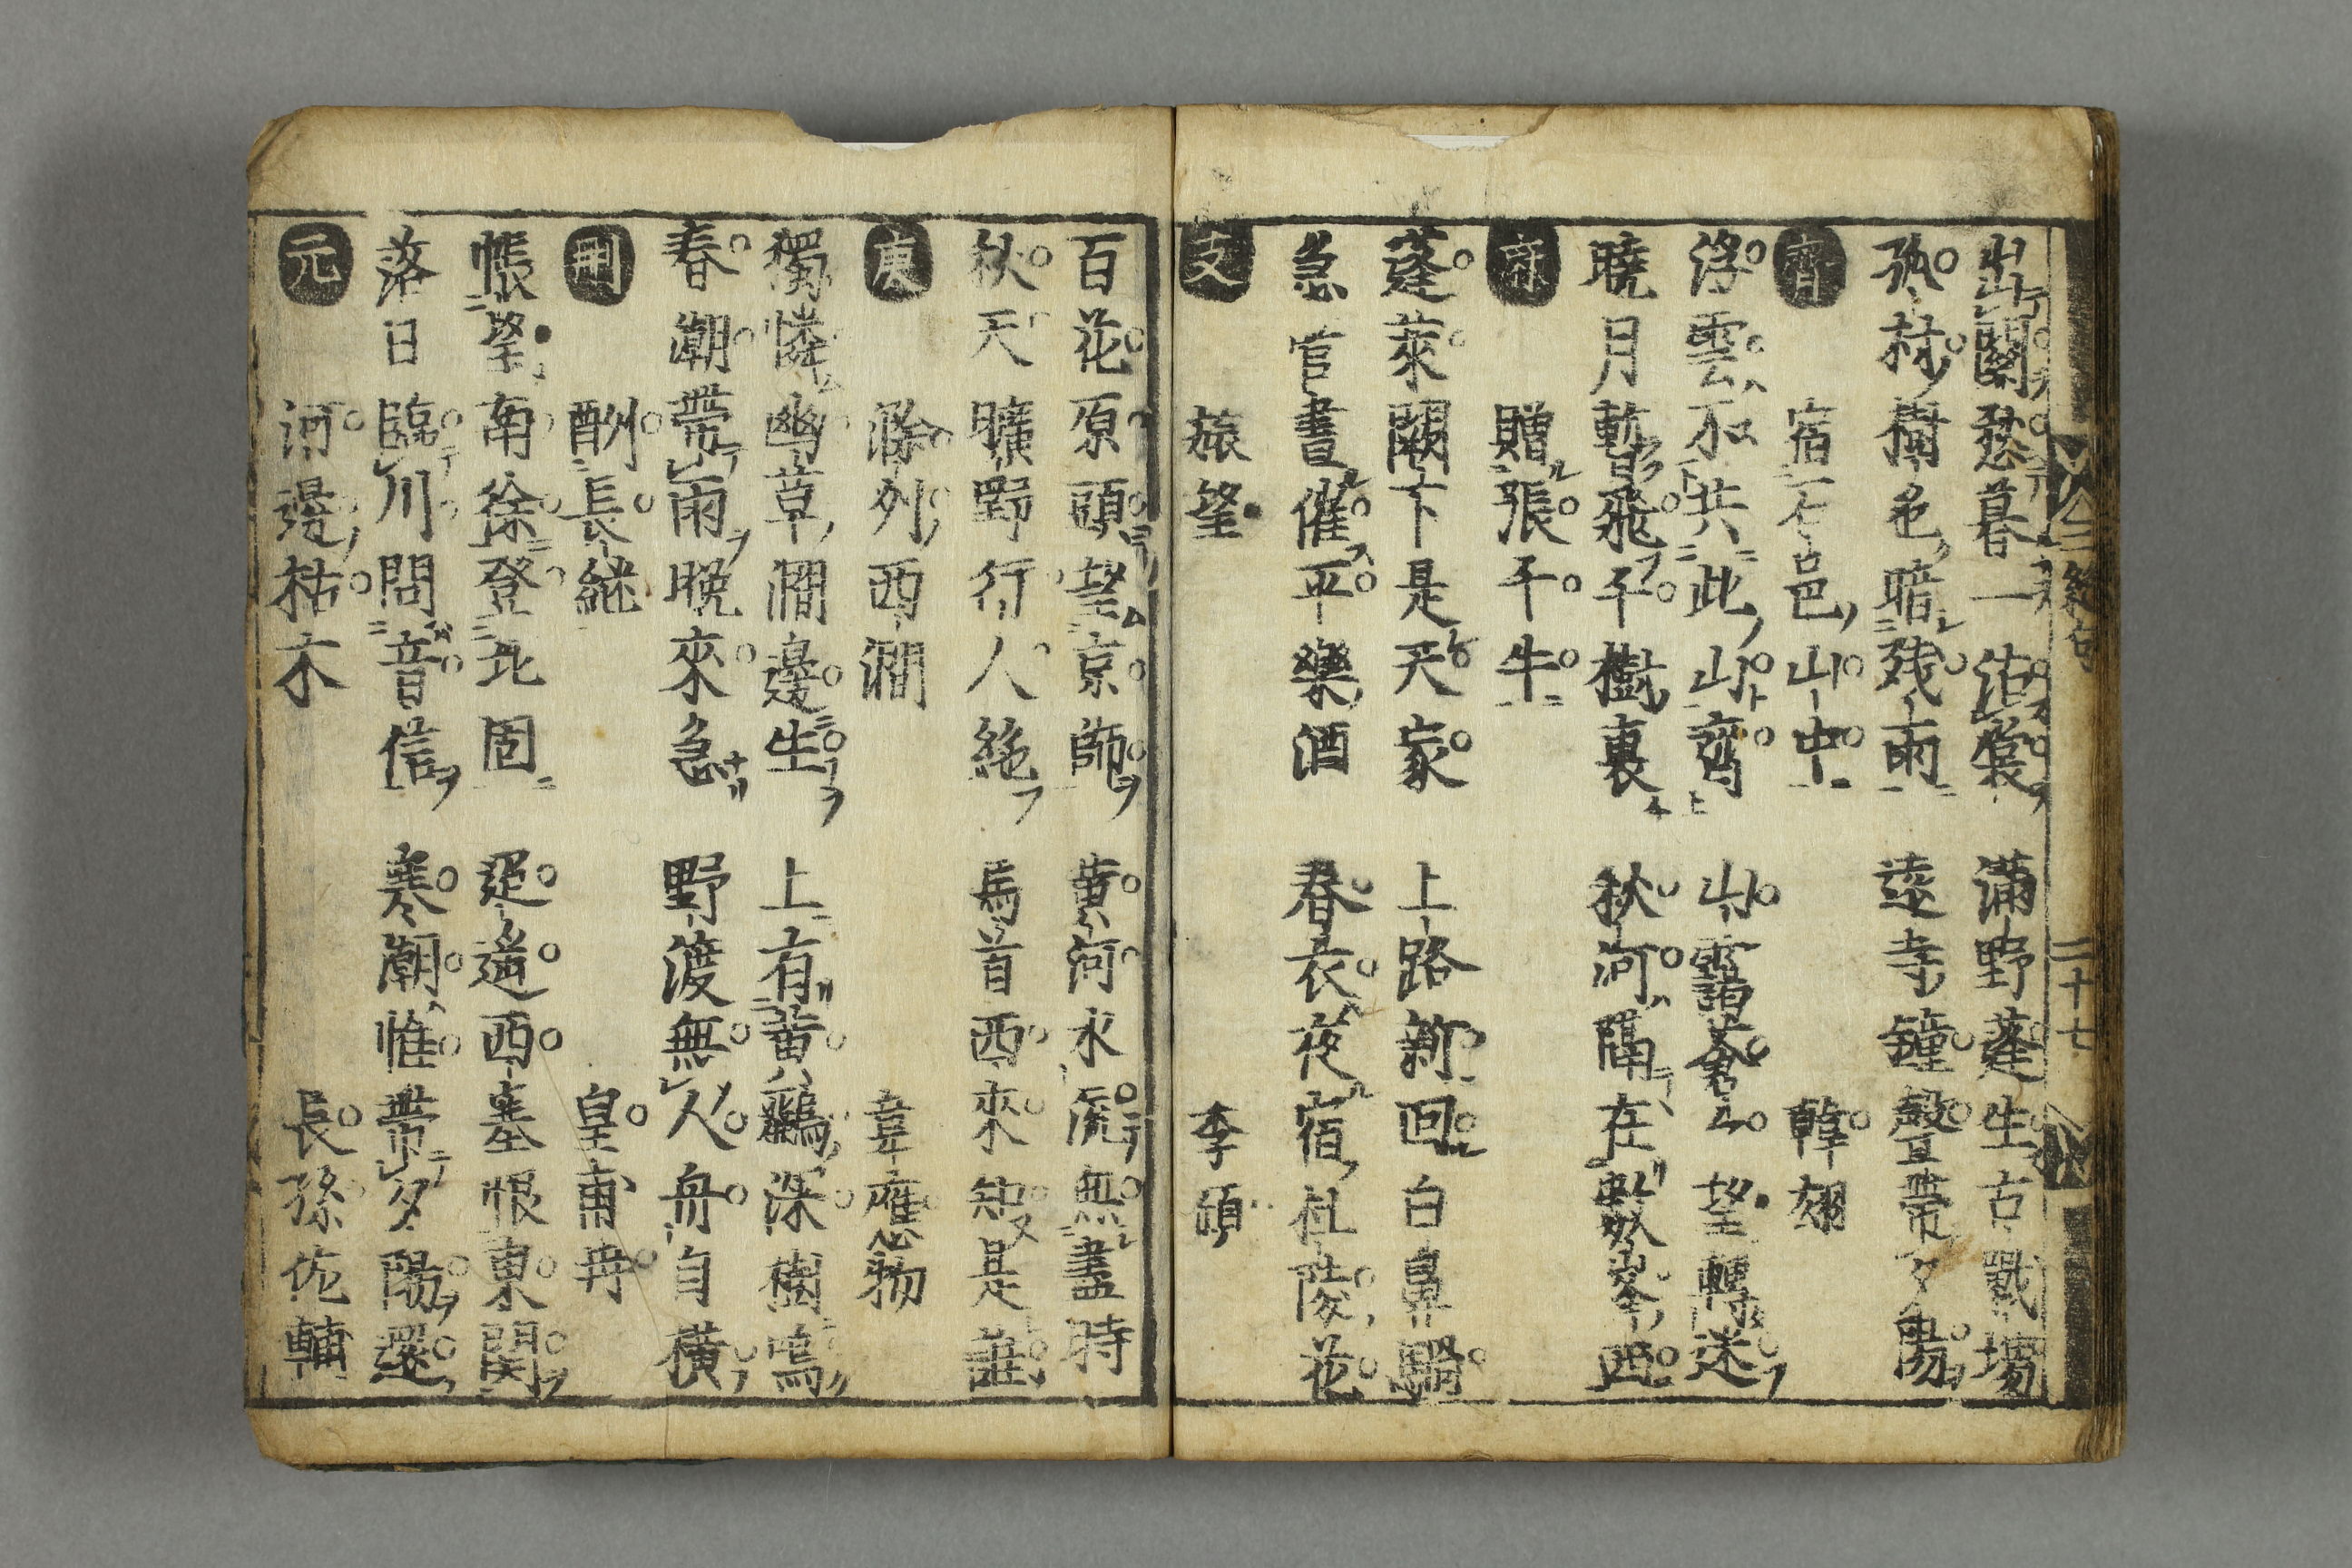 三 絶句 二十七
出關愁暮一沾裳 滿野蓬生古戰場
孤村樹色暗残雨 遠寺鐘聲帶夕陽
齊 宿石邑山中 韓翃
浮雲不共此山齊 山靄蒼〻望轉迷
曉月暫飛千樹裏 秋河隔在數峯西
麻 贈張千牛
蓬萊闕下是天家 上路新回白鼻騧
急管晝催平樂酒 春衣夜宿杜陵花
支 旅望 李頎
百花原頭望京師 黄河水流無盡時
秋天曠野行人絶 馬首西來知是誰
庚 滁州西澗 韋應物
獨憐幽草澗邊生 上有黄鸝深樹鳴
春潮帶雨晚來急 野渡無人舟自橫
刪 酬長継 皇甫冉
悵望南徐登北固 迢遥西塞恨東関
落日臨川問音信 寒潮惟帶夕陽還
元 河邊枯木 長孫佐輔